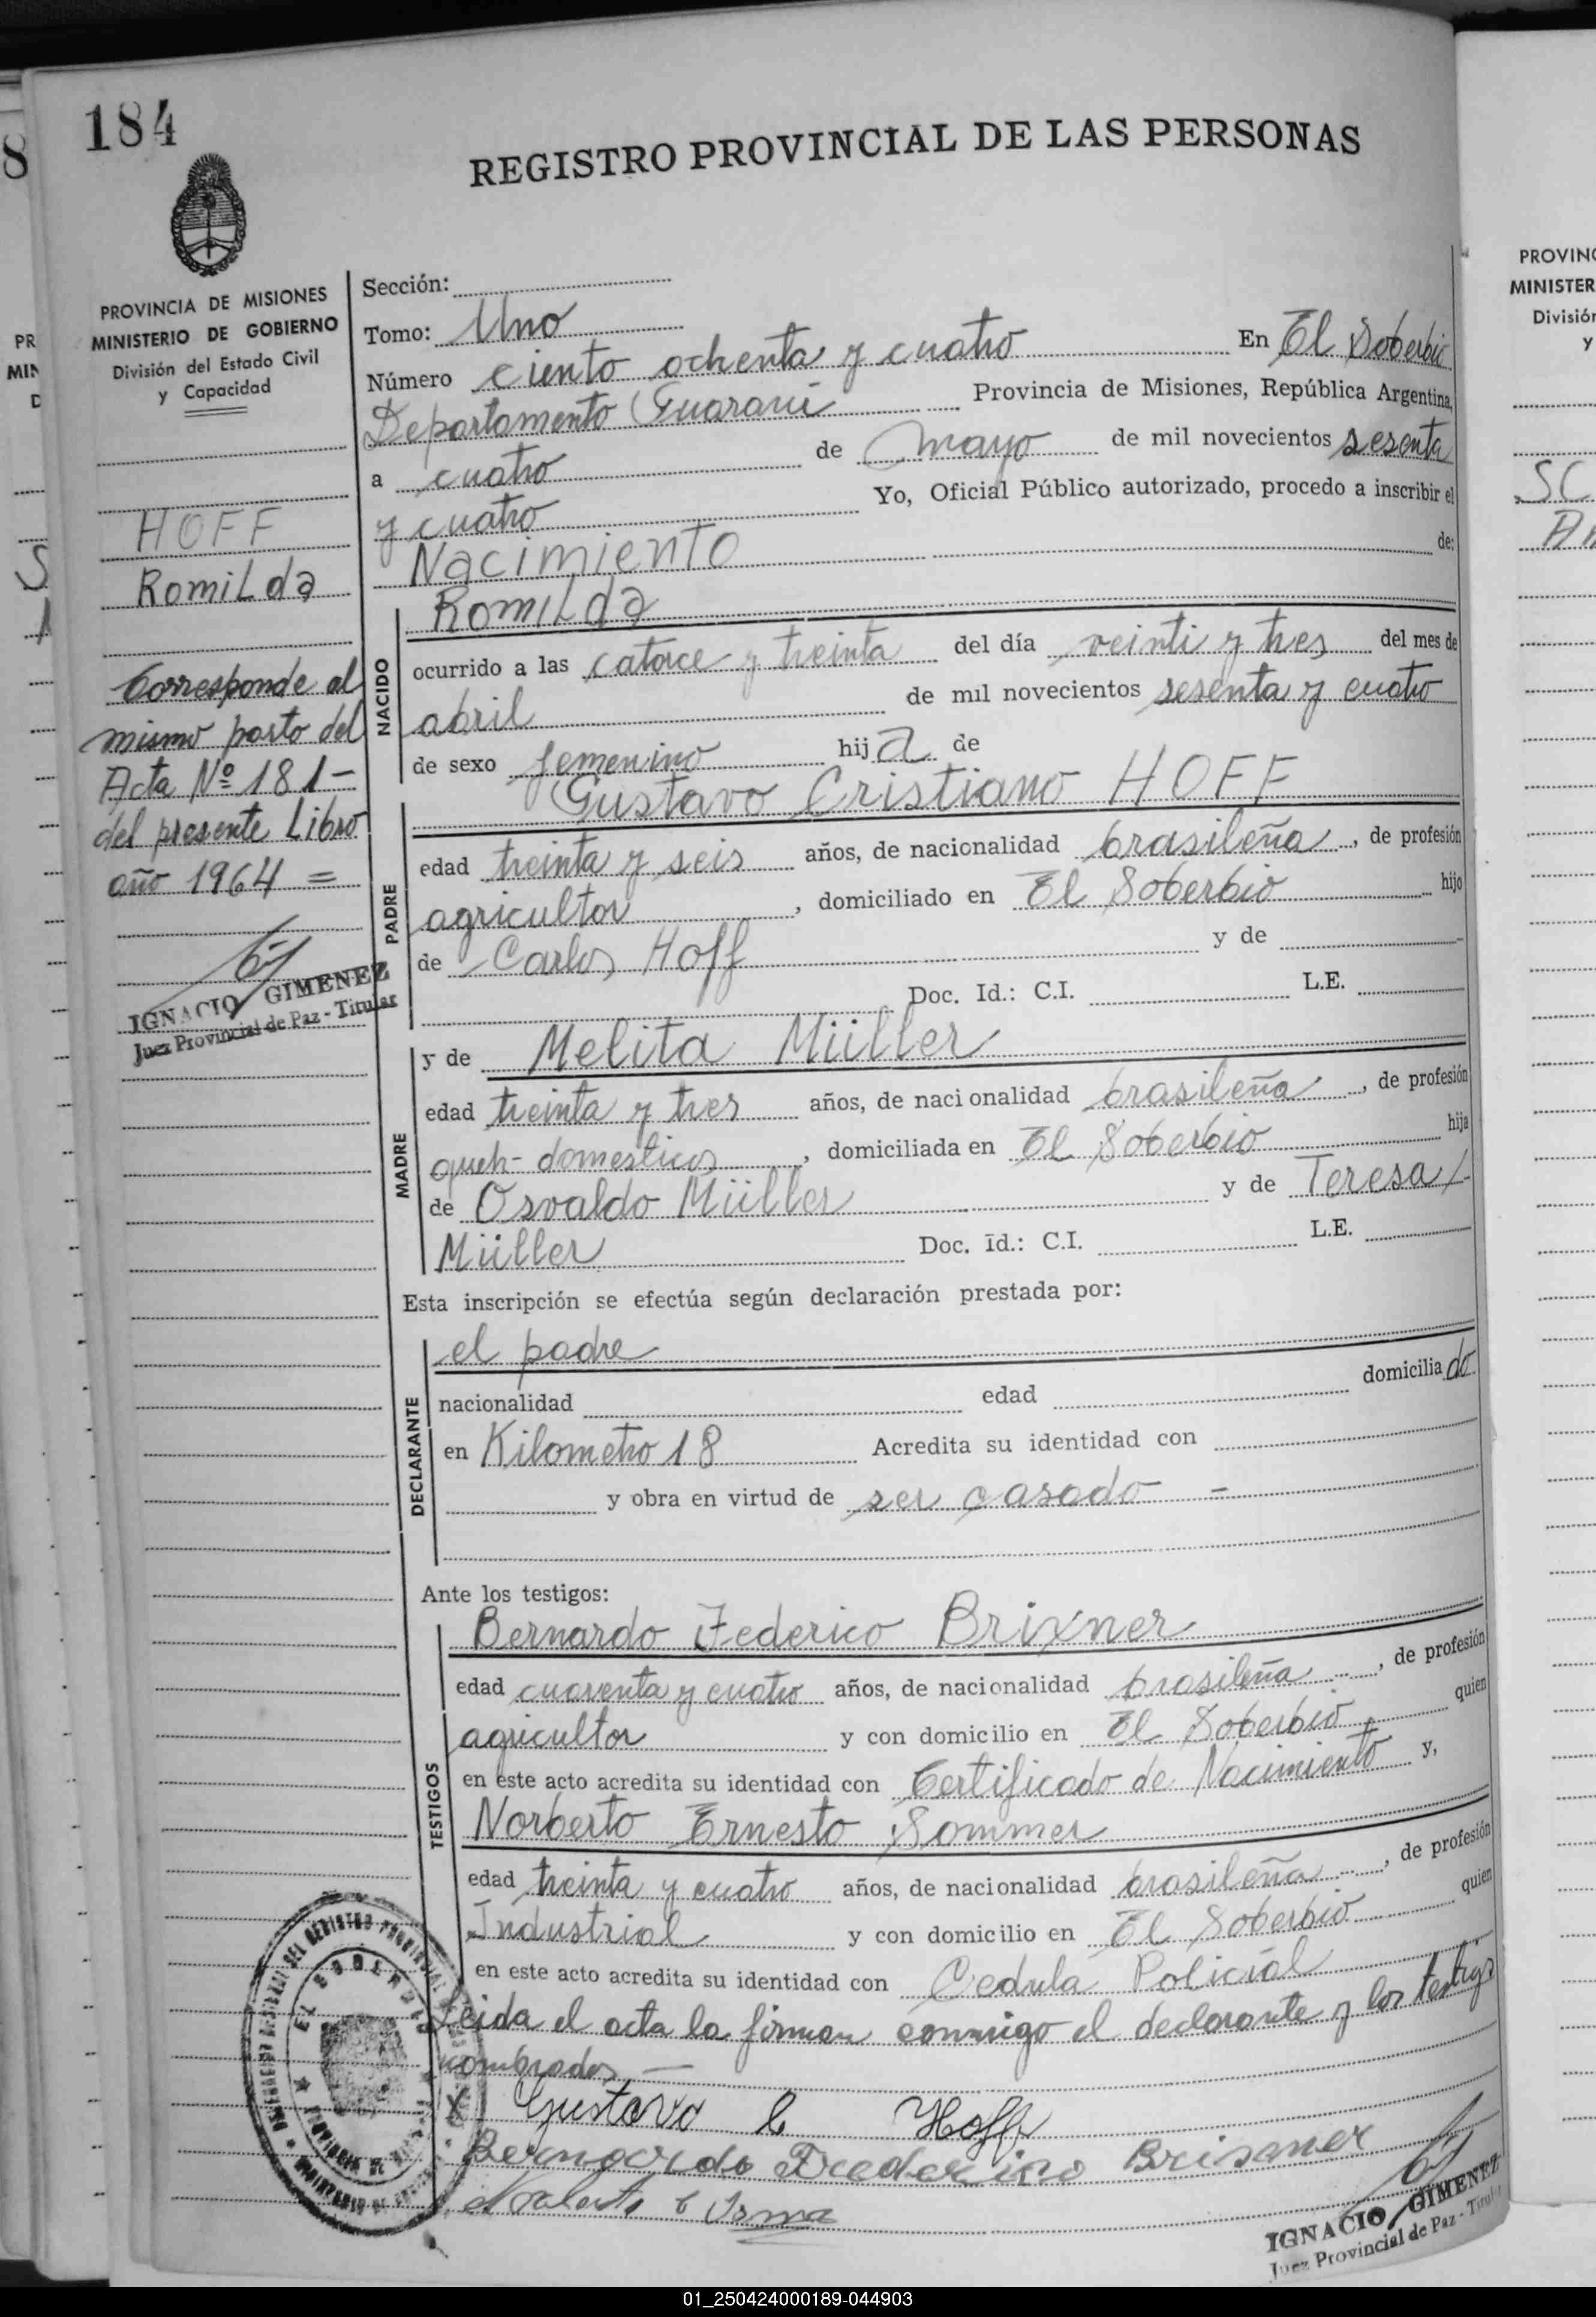 184
REGISTRO PROVINCIAL DE LAS PERSONAS
PROVINCIA DE MISIONES
MINISTERIO DE GOBIERNO
División del Estado Civil
y Capacidad
HOFF
Romilda
Corresponde al
mismo parto del
Acta Nº 181-
del presente Libro
año 1964 =
IGNACIO GIMENEZ
Juez Provincial de Paz - Titular
Sección:
Tomo: Uno
Número ciento ochenta y cuatro En El Soberbio
Departamento Guaraní Provincia de Misiones, República Argentina,
a cuatro de mayo de mil novecientos sesenta
y cuatro Yo, Oficial Público autorizado, procedo a inscribir el
Nacimiento de:
NACIDO
Romilda
ocurrido a las catorce y treinta del día veinti y tres del mes de
abril de mil novecientos sesenta y cuatro
de sexo femenino hija de
PADRE
Gustavo Cristiano HOFF
edad treinta y seis años, de nacionalidad brasileña, de profesión
agricultor, domiciliado en El Soberbio hijo
de Carlos Hoff y de
Doc. Id.: C.I. L.E.
MADRE
y de Melita Müller
edad treinta y tres años, de nacionalidad brasileña, de profesión
queh- domesticos, domiciliada en El Soberbio hija
de Osvaldo Müller y de Teresa
Müller Doc. Id.: C.I. L.E.
Esta inscripción se efectúa según declaración prestada por:
DECLARANTE
el padre
nacionalidad edad domiciliado
en Kilometro 18 Acredita su identidad con
y obra en virtud de ser casado -
Ante los testigos:
TESTIGOS
Bernardo Federico Brixner
edad cuarenta y cuatro años, de nacionalidad brasileña, de profesión
agricultor y con domicilio en El Soberbio, quien
en este acto acredita su identidad con Certificado de Nacimiento y,
Norberto Ernesto Sommer
edad treinta y cuatro años, de nacionalidad brasileña, de profesión
Industrial y con domicilio en El Soberbio quien
en este acto acredita su identidad con Cedula Policial
Leida el acta la firman conmigo el declarante y los testigos
nombrados -
X Gustavo C Hoff
IGNACIO GIMENEZ
Juez Provincial de Paz - Titular
EL SOBERBIO
PROVIN
MINISTER
División
y
01_250424000189-044903